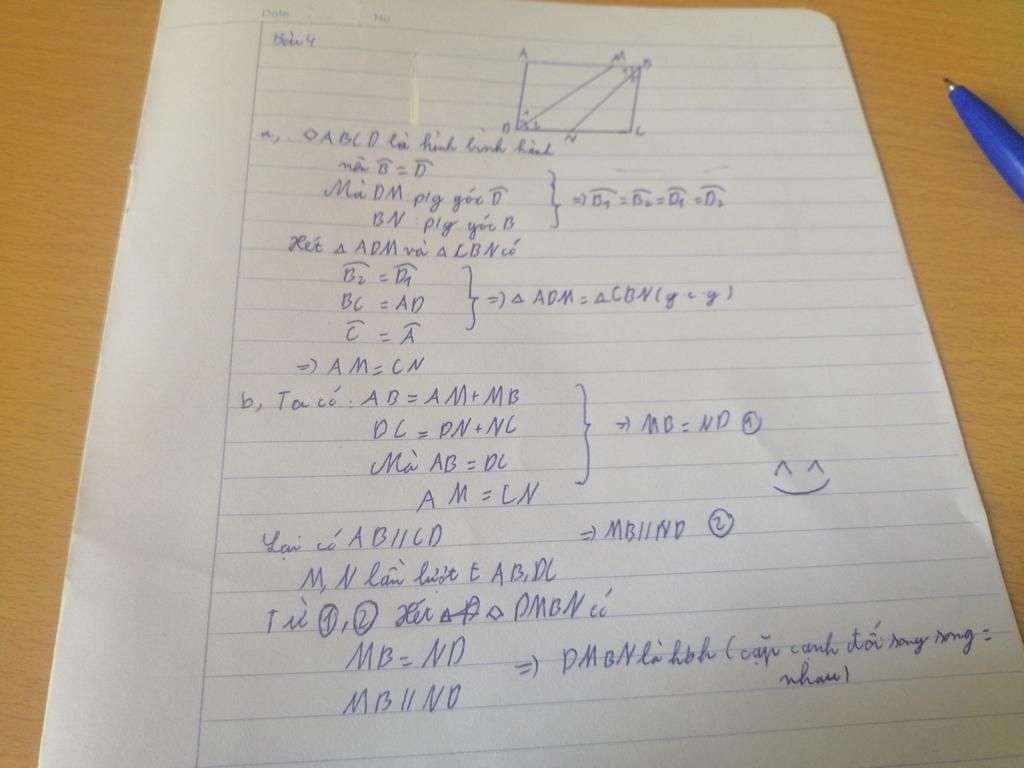 Date No
Bài 4
A M B
1 2
1 2
D N C
a, ◇ABCD là hình bình hành
nên B̂ = D̂
Mà DM: p/g góc D̂
BN: p/g góc B
=> B̂₁ = B̂₂ = D̂₁ = D̂₂
Xét △ ADM và △ CBN có
B̂₂ = D̂₁
BC = AD => △ ADM = △CBN (g.c.g)
Ĉ = Â
=> AM = CN
b, Ta có: AB = AM + MB
DC = DN + NC => MB = ND ①
Mà AB = DC
AM = CN
Lại có AB // CD => MB // ND ②
M, N lần lượt ∈ AB, DC
Từ ①, ② Xét ◇ DMBN có
MB = ND => DMBN là hbh (cặp cạnh đối song song =
nhau)
MB // ND